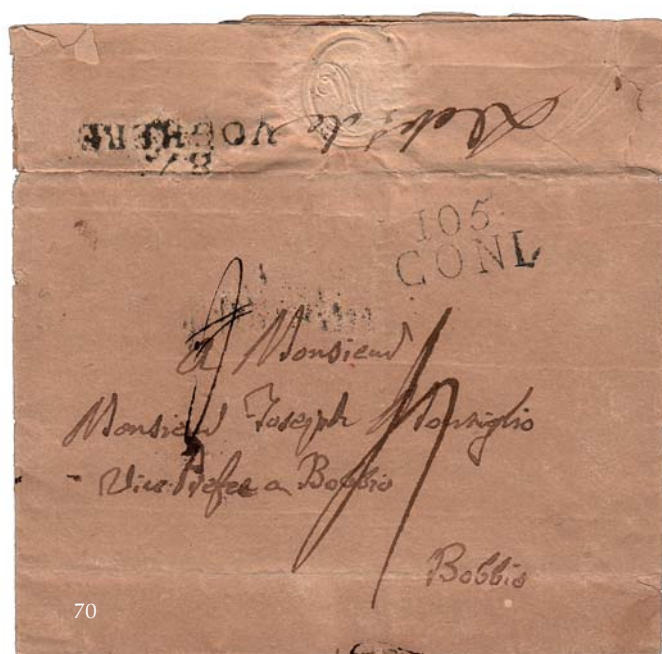 Deb. de VOGHERE
87
105
CONI
A Monsieur
Monsieur Joseph Monsiglio
Vice Prefet a Bobbio
Bobbio
70